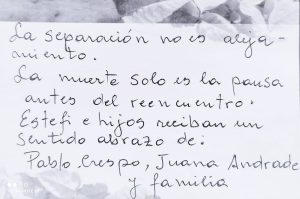 La separación no es aleja-
miento.
La muerte solo es la pausa
antes del reencuentro.
Estefi e hijos reciban un
sentido abrazo de:
Pablo Crespo, Juana Andrade
y familia